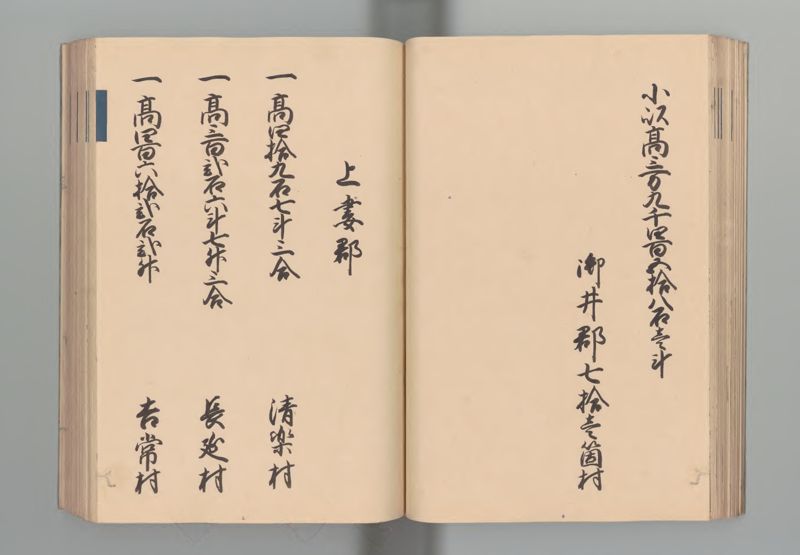 小以高三万九千四百五拾八石壱斗
御井郡七拾壱箇村
上妻郡
一高四拾九石七斗三合　清楽村
一高三百弐石六斗七升三合　長延村
一高四百六拾弐石弐升　吉常村